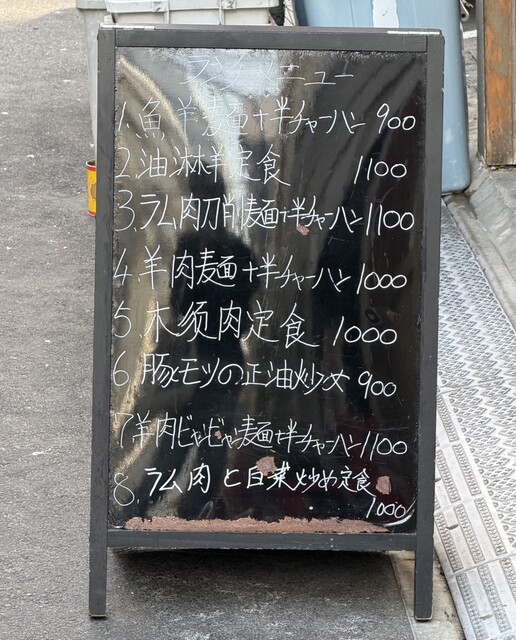 ランチメニュー
1.魚羊麺+半チャーハン 900
2.油淋羊定食 1100
3.ラム肉刀削麺+半チャーハン 1100
4.羊肉麺+半チャーハン 1000
5.木须肉定食 1000
6.豚モツの正油炒め 900
7羊肉ビャンビャン麺+半チャーハン 1100
8.ラム肉と白菜炒め定食
1000